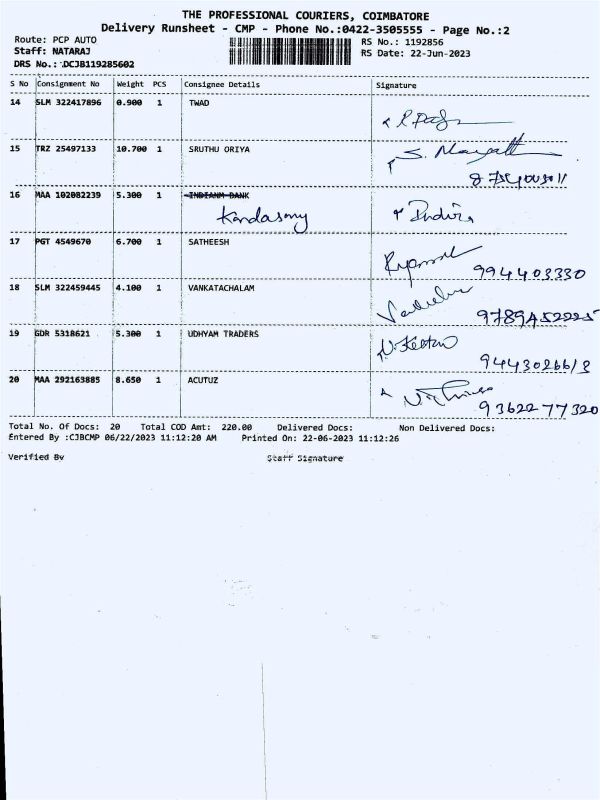 THE PROFESSIONAL COURIERS, COIMBATORE
Delivery Runsheet - CMP - Phone No.:0422-3505555 - Page No.:2
Route: PCP AUTO RS No.: 1192856
Staff: NATARAJ RS Date: 22-Jun-2023
DRS No.: DCJB119285602
S No Consignment No Weight PCS Consignee Details Signature
14 SLM 322417896 0.900 1 TWAD
15 TRZ 25497133 10.700 1 SRUTHU ORIYA S.
16 MAA 102082239 5.300 1 INDIANM BANK
Kandasamy Indira
17 PGT 4549670 6.700 1 SATHEESH
994403330
18 SLM 322459445 4.100 1 VANKATACHALAM
9789452225
19 GDR 5318621 5.300 1 UDHYAM TRADERS
9443026613
20 MAA 292163885 8.650 1 ACUTUZ
9362277320
Total No. Of Docs: 20 Total COD Amt: 220.00 Delivered Docs: Non Delivered Docs:
Entered By :CJBCMP 06/22/2023 11:12:20 AM Printed On: 22-06-2023 11:12:26
Verified By Staff Signature